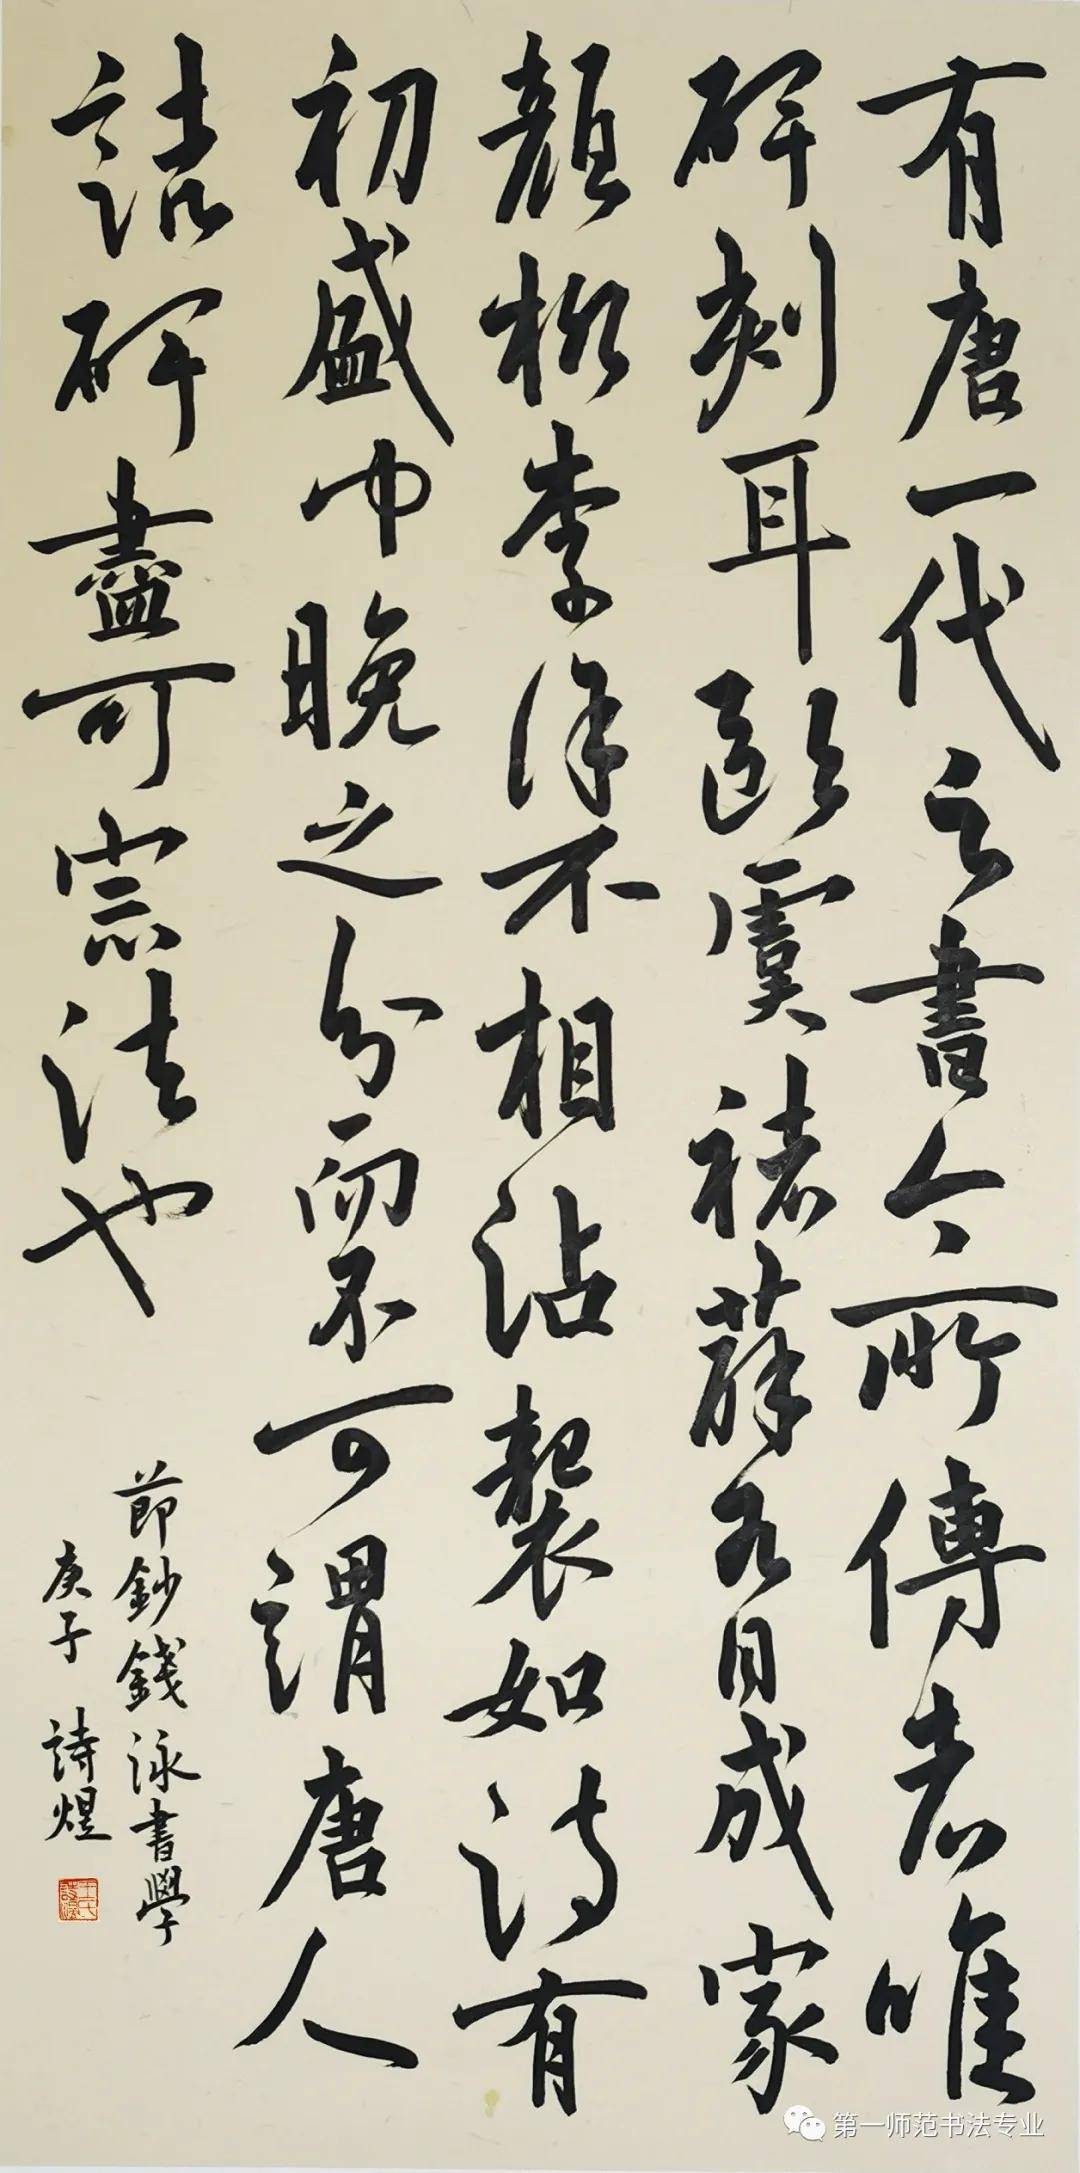 有唐一代之書今所傳者唯
碑刻耳歐虞褚薛各自成家
顏柳李徐不相沾襲如詩有
初盛中晚之分而不可謂唐人
諸碑盡可宗法也
節鈔錢泳書學
庚子 詩煜
王氏詩煜
第一师范书法专业